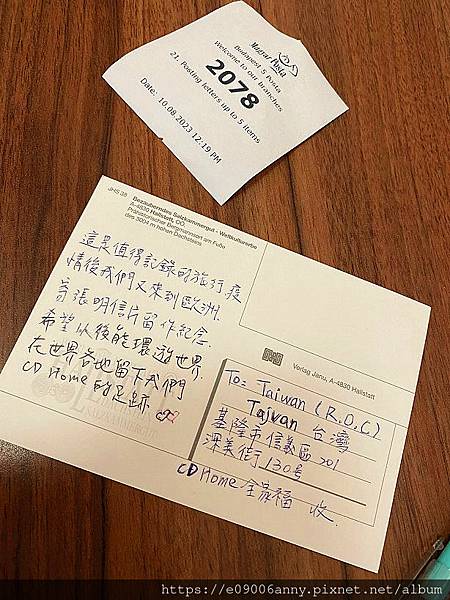 Magyar Posta
Budapest 5 Posta
Welcome to our branches
2078
21. Posting letters up to 5 items
Date: 10.08.2023 12:19 PM
JHS 38 Bezauberndes Salzkammergut - Weltkulturerbe
A-4830 Hallstatt, OÖ,
Prähistorischer Bergmannsort am Fuße
des 3004 m hohen Dachsteins
這是值得記錄的旅行,疫
情後我們又來到歐洲.
寄張明信片留作紀念.
希望以後能環遊世界.
在世界各地留下我們
CD Home的足跡.
SALZKAMMERGUT
Verlag Janu, A-4830 Hallstatt
To: Taiwan (R.O.C)
Taiwan 台灣
基隆市信義區 201
深美街130号
CD Home 全家福 收.
https://e09006anny.pixnet.net/album